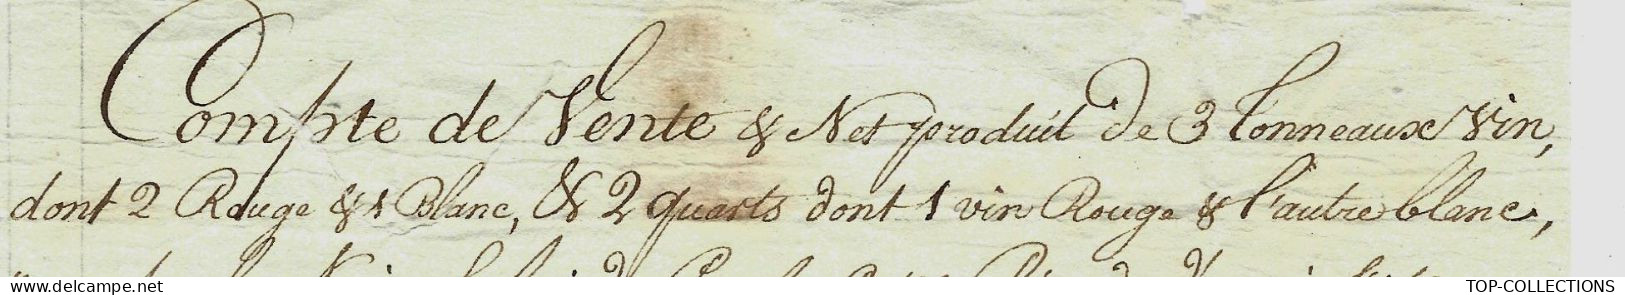 Compte de Vente & Net produit de 3 Tonneaux vin,
dont 2 Rouge & 1 Blanc, & 2 quarts dont 1 vin Rouge & l'autre blanc,
delcampe.net
TOP-COLLECTIONS